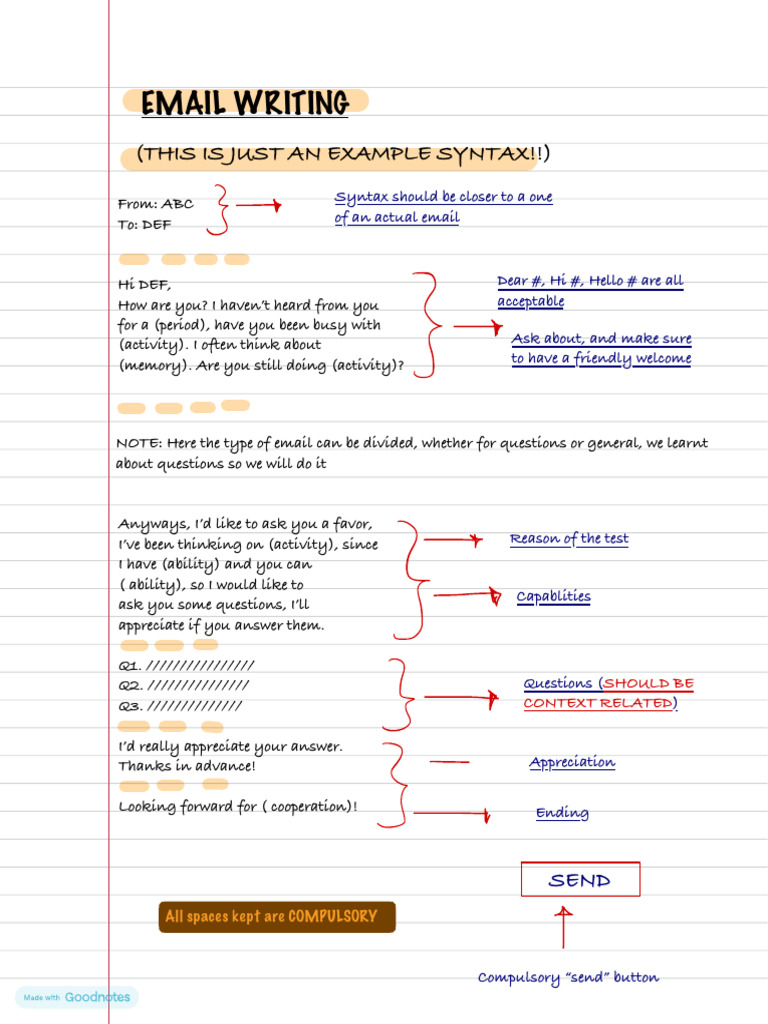 EMAIL WRITING
(THIS IS JUST AN EXAMPLE SYNTAX!!)
From: ABC
To: DEF
Syntax should be closer to a one
of an actual email
Hi DEF,
How are you? I haven't heard from you
for a (period), have you been busy with
(activity). I often think about
(memory). Are you still doing (activity)?
Dear #, Hi #, Hello # are all
acceptable
Ask about, and make sure
to have a friendly welcome
NOTE: Here the type of email can be divided, whether for questions or general, we learnt
about questions so we will do it
Anyways, I'd like to ask you a favor,
I've been thinking on (activity), since
I have (ability) and you can
( ability), so I would like to
ask you some questions, I'll
appreciate if you answer them.
Reason of the test
Capablities
Q1. ////////////////
Q2. ///////////////
Q3. //////////////
Questions (SHOULD BE
CONTEXT RELATED)
I'd really appreciate your answer.
Thanks in advance!
Appreciation
Looking forward for ( cooperation)!
Ending
SEND
All spaces kept are COMPULSORY
Compulsory "send" button
Made with Goodnotes